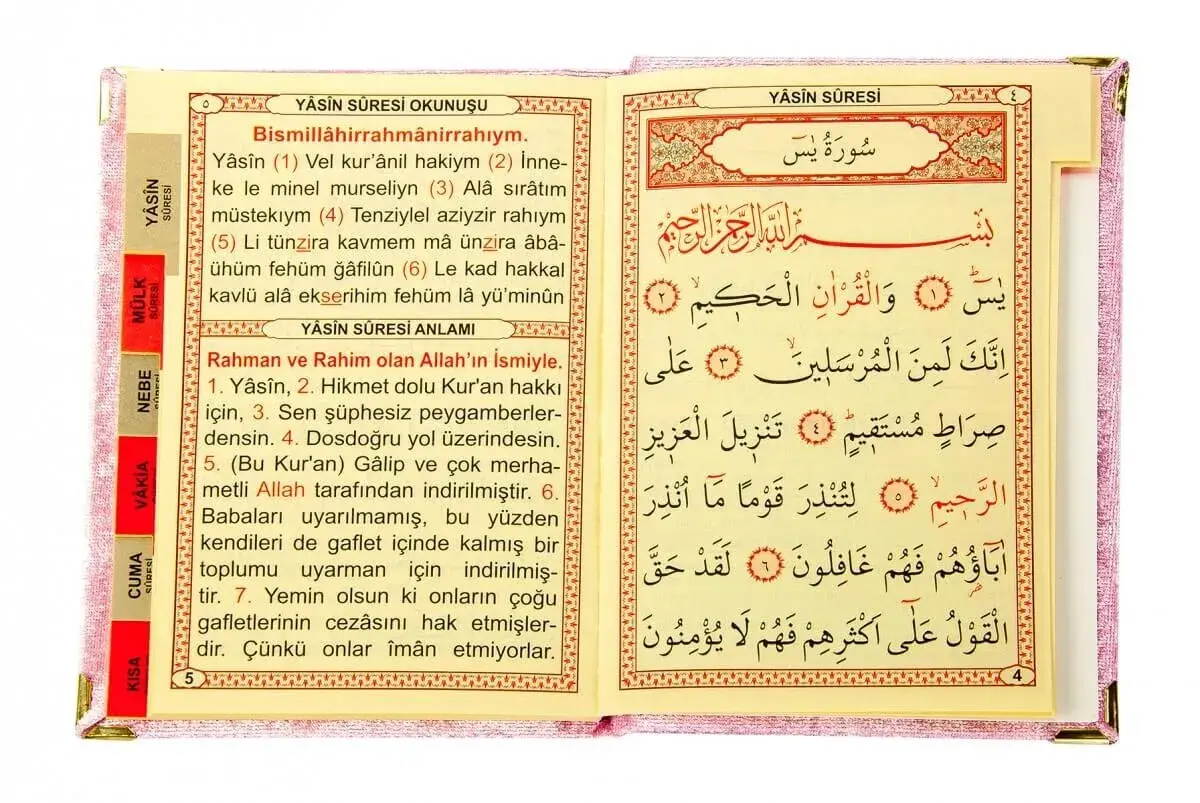 YÂSİN SÛRESİ
٤
سُورَةُ يٰسٓ
بِسْمِ اللهِ الرَّحْمٰنِ الرَّحِيمِ
يٰسٓ ﴿١﴾ وَالْقُرْاٰنِ الْحَكِيمِ ﴿٢﴾
اِنَّكَ لَمِنَ الْمُرْسَلِينَ ﴿٣﴾ عَلٰى
صِرَاطٍ مُسْتَقِيمٍ ﴿٤﴾ تَنْزِيلَ الْعَزِيزِ
الرَّحِيمِ ﴿٥﴾ لِتُنْذِرَ قَوْمًا مَٓا اُنْذِرَ
اٰبَٓاؤُهُمْ فَهُمْ غَافِلُونَ ﴿٦﴾ لَقَدْ حَقَّ
الْقَوْلُ عَلٰٓى اَكْثَرِهِمْ فَهُمْ لَا يُؤْمِنُونَ
4
٥
YÂSİN SÛRESİ OKUNUŞU
Bismillâhirrahmânirrahıym.
Yâsîn (1) Vel kur’ânil hakiym (2) İnne-
ke le minel murseliyn (3) Alâ sırâtım
müstekıym (4) Tenziylel aziyzir rahıym
(5) Li tünzira kavmem mâ ünzira âbâ-
ühüm fehüm ğâfilûn (6) Le kad hakkal
kavlü alâ ekserihim fehüm lâ yü’minûn
YÂSİN SÛRESİ ANLAMI
Rahman ve Rahim olan Allah’ın İsmiyle.
1. Yâsîn, 2. Hikmet dolu Kur'an hakkı
için, 3. Sen şüphesiz peygamberler-
densin. 4. Dosdoğru yol üzerindesin.
5. (Bu Kur'an) Gâlip ve çok merha-
metli Allah tarafından indirilmiştir. 6.
Babaları uyarılmamış, bu yüzden
kendileri de gaflet içinde kalmış bir
toplumu uyarman için indirilmiş-
tir. 7. Yemin olsun ki onların çoğu
gafletlerinin cezâsını hak etmişler-
dir. Çünkü onlar îmân etmiyorlar.
5
YÂSÎN
SÛRESİ
MÜLK
SÛRESİ
NEBE
SÛRESİ
VÂKIA
CUMA
SÛRESİ
KISA